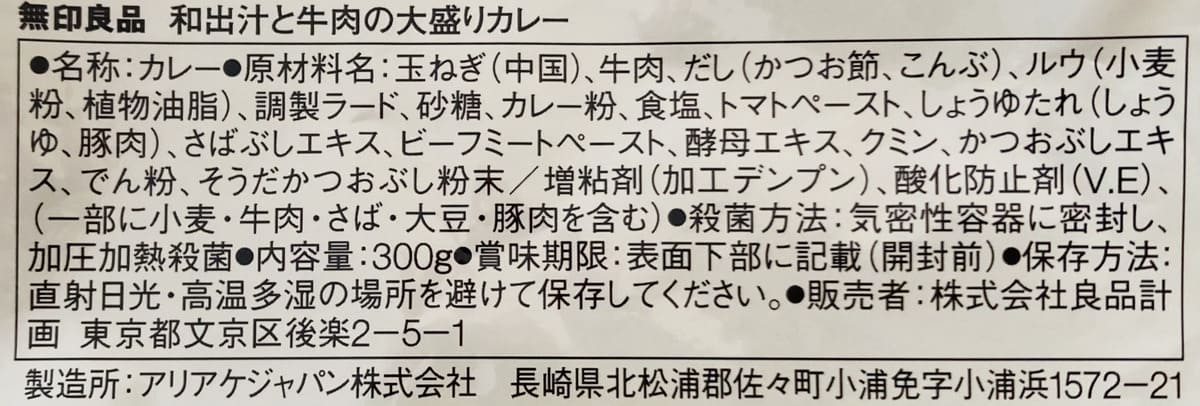 無印良品 和出汁と牛肉の大盛りカレー
●名称：カレー●原材料名：玉ねぎ（中国）、牛肉、だし（かつお節、こんぶ）、ルウ（小麦
粉、植物油脂）、調製ラード、砂糖、カレー粉、食塩、トマトペースト、しょうゆたれ（しょう
ゆ、豚肉）、さばぶしエキス、ビーフミートペースト、酵母エキス、クミン、かつおぶしエキ
ス、でん粉、そうだかつおぶし粉末／増粘剤（加工デンプン）、酸化防止剤（V.E）、
（一部に小麦・牛肉・さば・大豆・豚肉を含む）●殺菌方法：気密性容器に密封し、
加圧加熱殺菌●内容量：300g●賞味期限：表面下部に記載（開封前）●保存方法：
直射日光・高温多湿の場所を避けて保存してください。●販売者：株式会社良品計
画 東京都文京区後楽2-5-1
製造所：アリアケジャパン株式会社 長崎県北松浦郡佐々町小浦免字小浦浜1572-21